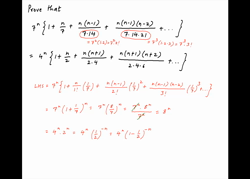 Prove that
7ⁿ { 1 + n/7 + n(n-1)/7·14 + n(n-1)(n-2)/7·14·21 + ... }
= 4ⁿ { 1 + n/2 + n(n+1)/2·4 + n(n+1)(n+2)/2·4·6 + ... }
LHS = 7ⁿ { 1 + n/1! (1/7) + n(n-1)/2! (1/7)² + n(n-1)(n-2)/3! (1/7)³ + ... }
= 7ⁿ (1 + 1/7)ⁿ = 7ⁿ (8/7)ⁿ = 7ⁿ 8ⁿ/7ⁿ = 8ⁿ
= 4ⁿ 2ⁿ = 4ⁿ (1/2)⁻ⁿ = 4ⁿ (1 - 1/2)⁻ⁿ